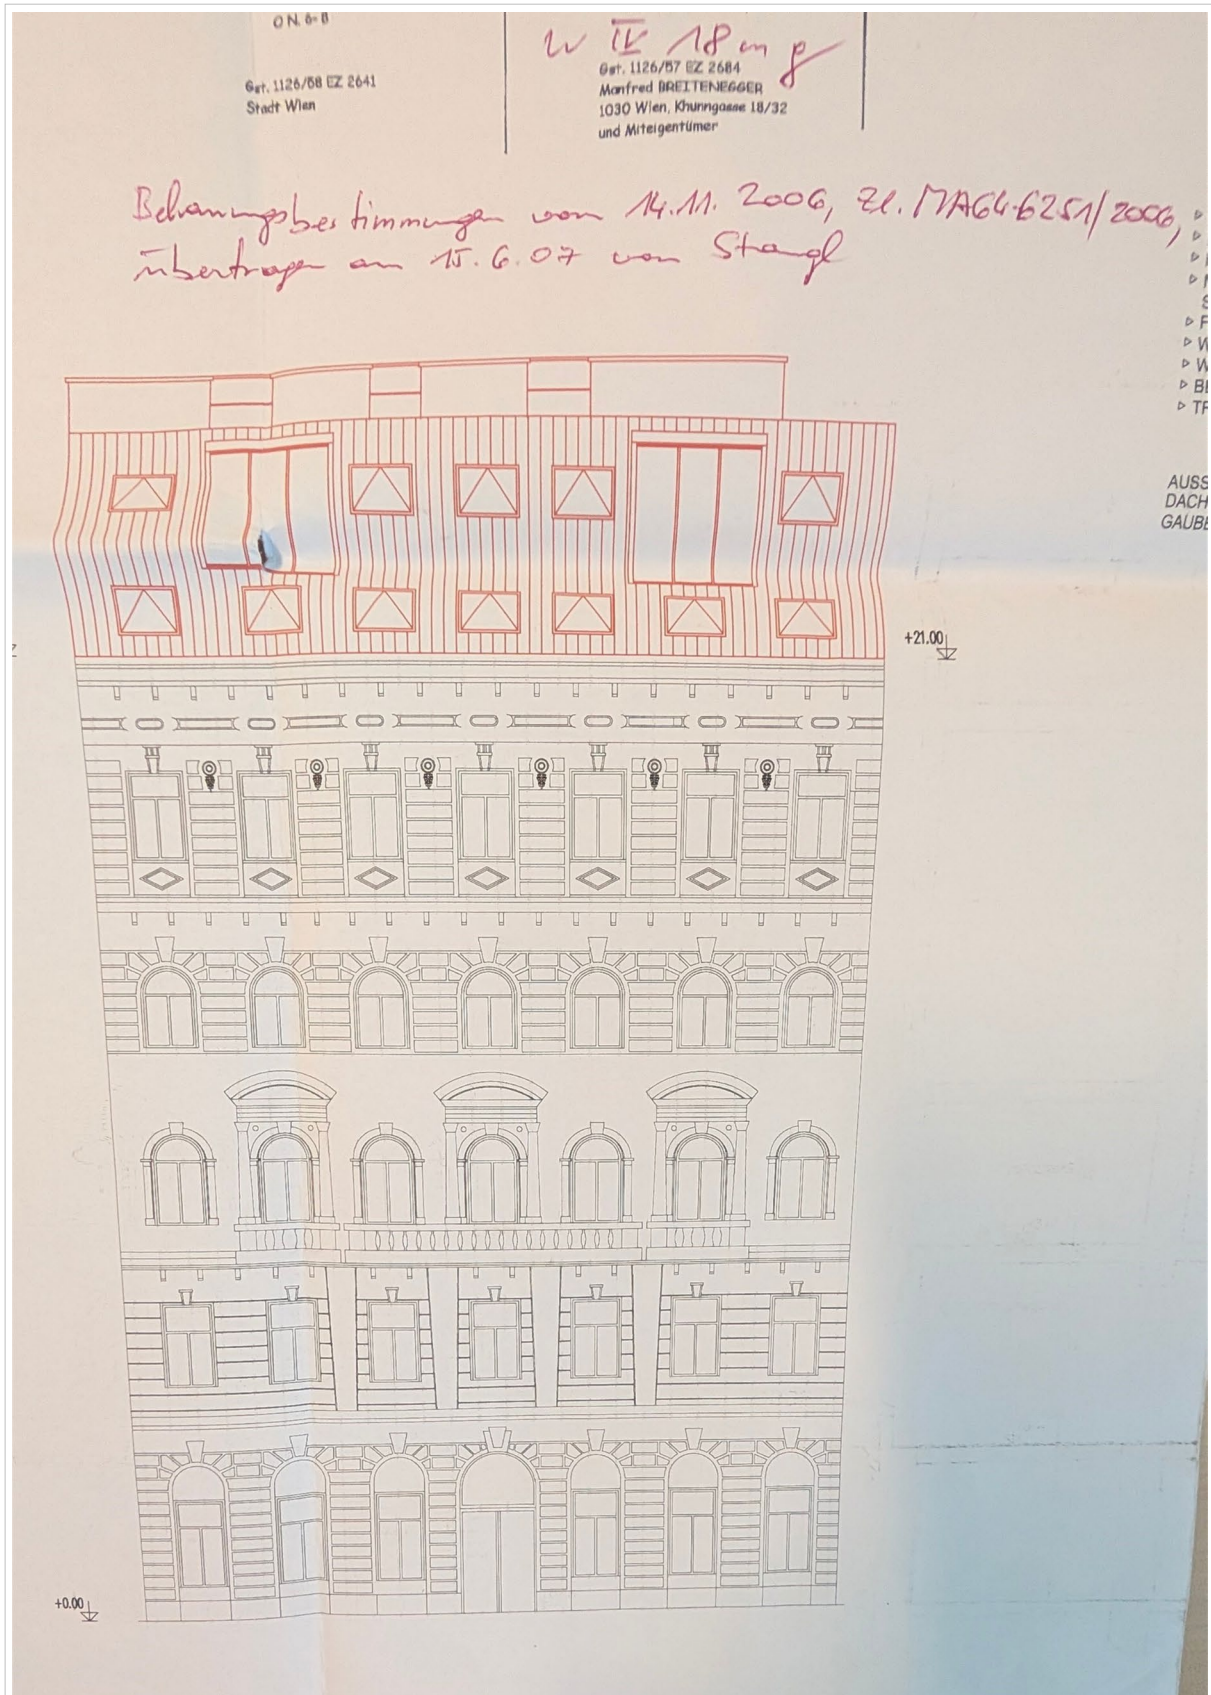 O N. 6-8
W IV 18 m g
Gst. 1126/58 EZ 2641
Stadt Wien
Gst. 1126/57 EZ 2684
Manfred BREITENEGGER
1030 Wien, Khunngasse 18/32
und Miteigentümer
Bebauungsbestimmungen vom 14.11. 2006, Zl. MA64-6251/2006,
übertragen am 15.6.07 von Stangl
AUSS
DACH
GAUBE
+21.00
+0.00